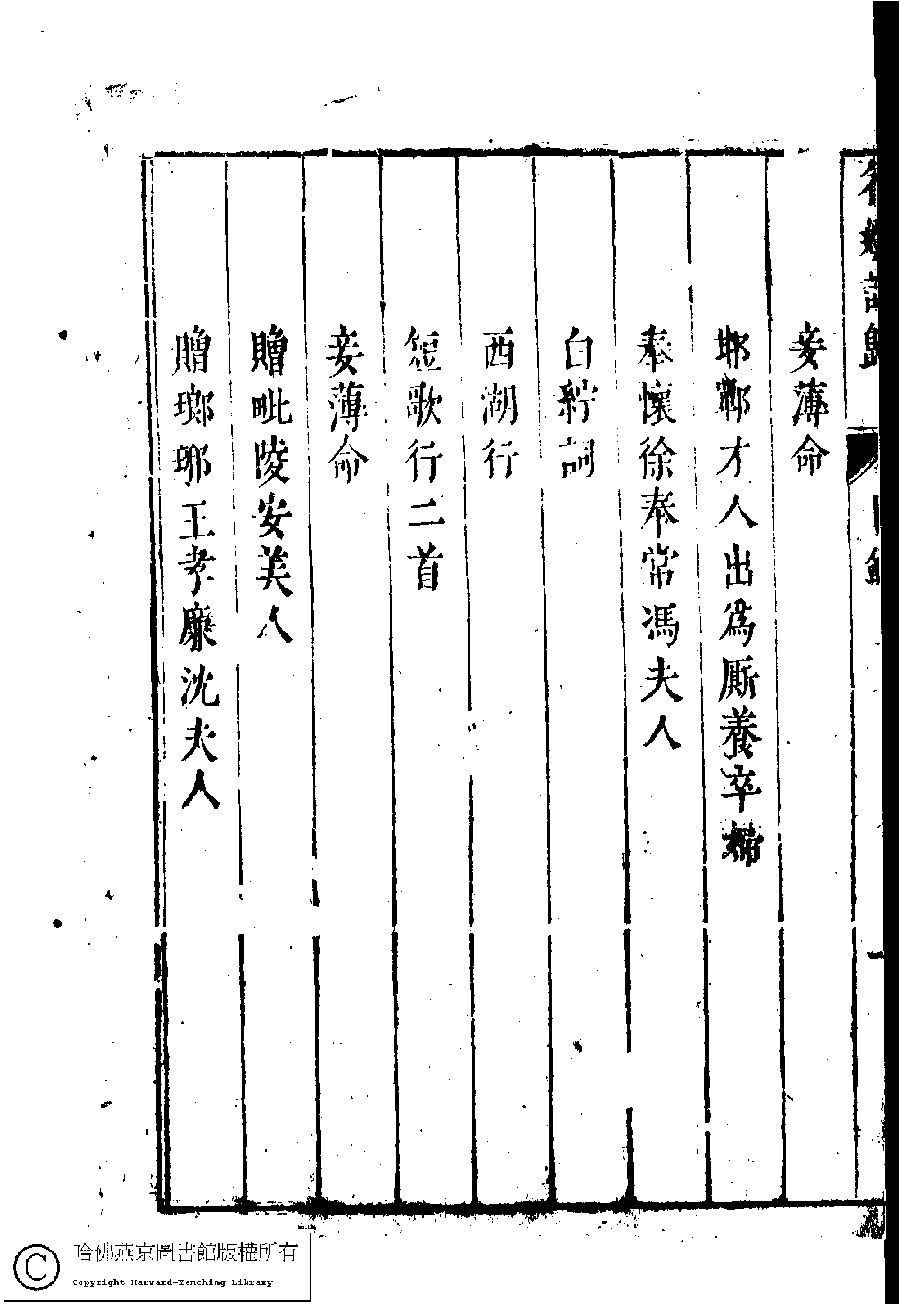 名媛詩歸
目錄
妾薄命
邯鄲才人出爲厮養卒婦
奉懷徐奉常馮夫人
白紵詞
西湖行
短歌行二首
妾薄命
贈毗陵安美人
贈瑯琊王孝廉沈夫人
哈佛燕京圖書館版權所有
Copyright Harvard-Yenching Library